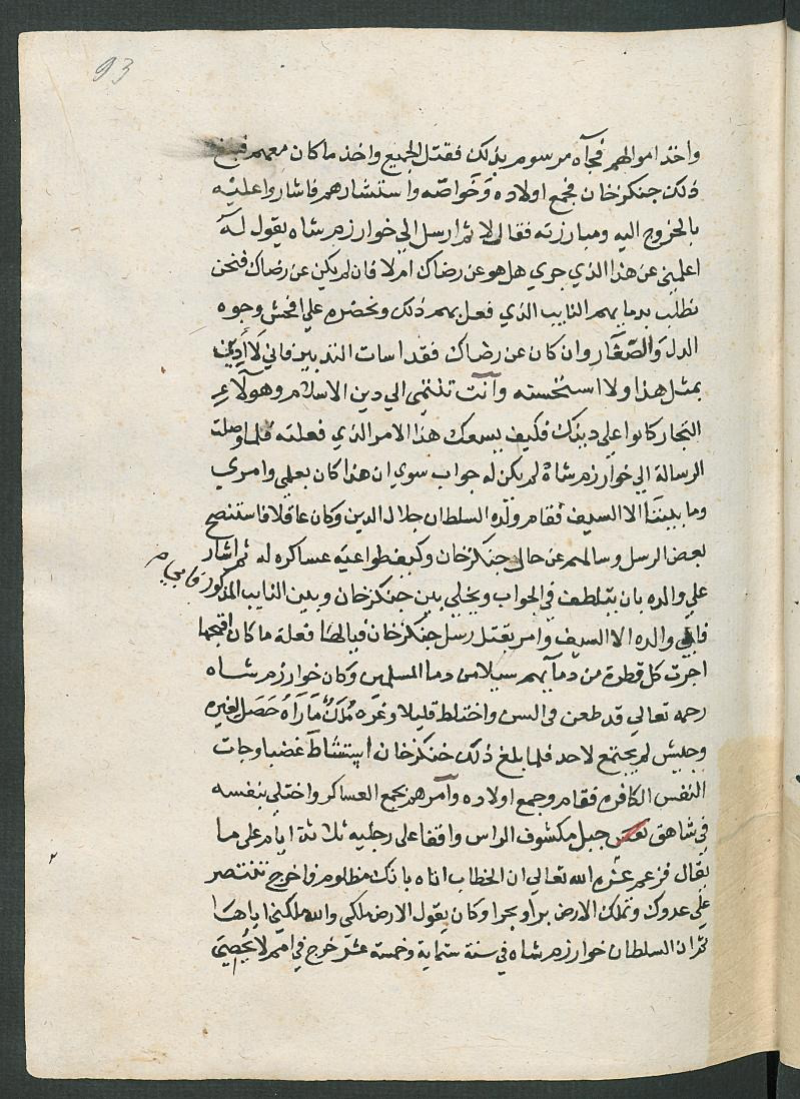 93
واخذ اموالهم فجآه مرسوم بذلك فقتل الجميع واخذ ما كان معهم فبلغ
ذلك جنكز خان فجمع اولاده وخواصه واستشارهم فاشاروا عليه
بالخروج اليه ومبارزته فقال لا ثم ارسل الي خوارزم شاه يقول له
اعلمني عن هذا الذي جري هل هو عن رضاك ام لا فان لم يكن عن رضاك فنحن
نطلب بدمايهم النايب الذي فعل بهم ذلك ونحضره علي افحش وجوه
الدل والصغار وان كان عن رضاك فقد اسات التدبير فاني لا ادين
بمثل هذا ولا استحسنه وآنت تنتمي الي دين الاسلام وهولآء
التجار كانوا علي دينك فكيف يسعك هذا الامر الذي فعلته فلما وصلت
الرسالة الي خوارزم شاه لم يكن له جواب سوي ان هذا كان بعلمي وامري
وما بيننا الا السيف فقام ولده السلطان جلال الدين وكان عاقلا فاستنصح
بعض الرسل وسالهم عن حال جنكز خان وكيف طواعيه عساكره له ثم اشار
علي والده بان يتلطف في الجواب ويخلي بين جنكز خان وبين النايب المذكور
فابي والده الا السيف وامر بقتل رسل جنكز خان فيا لها فعلة ما كان اقبحها
اجرت كل قطرة من دمآيهم سيلا من دما المسلمين وكان خوارزم شاه
رحمه تعالي قد طعن في السن واختلط قليلا وغره ملك مآراه حصل لغيره
وجيش لم يجتمع لاحد فلما بلغ ذلك جنكز خان استشاط غضبا وجات
النفس الكافره فقام وجمع اولاده وآمرهم بجمع العساكر واختلي بنفسه
في شاهق جبل مكشوف الراس واقفا على رجليه ثلاثة ايام على ما
يقال فزعم عثره الله تعالي ان الخطاب اتاه بانك مظلوم فاخرج تنتصر
علي عدوك وتملك الارض برا وبحرا وكان يقول الارض ملكي والله ملكني اياها
ثم ان السلطان خوارزم شاه في سنة ستماية وخمسة عشر خرج في امم لا يحصي